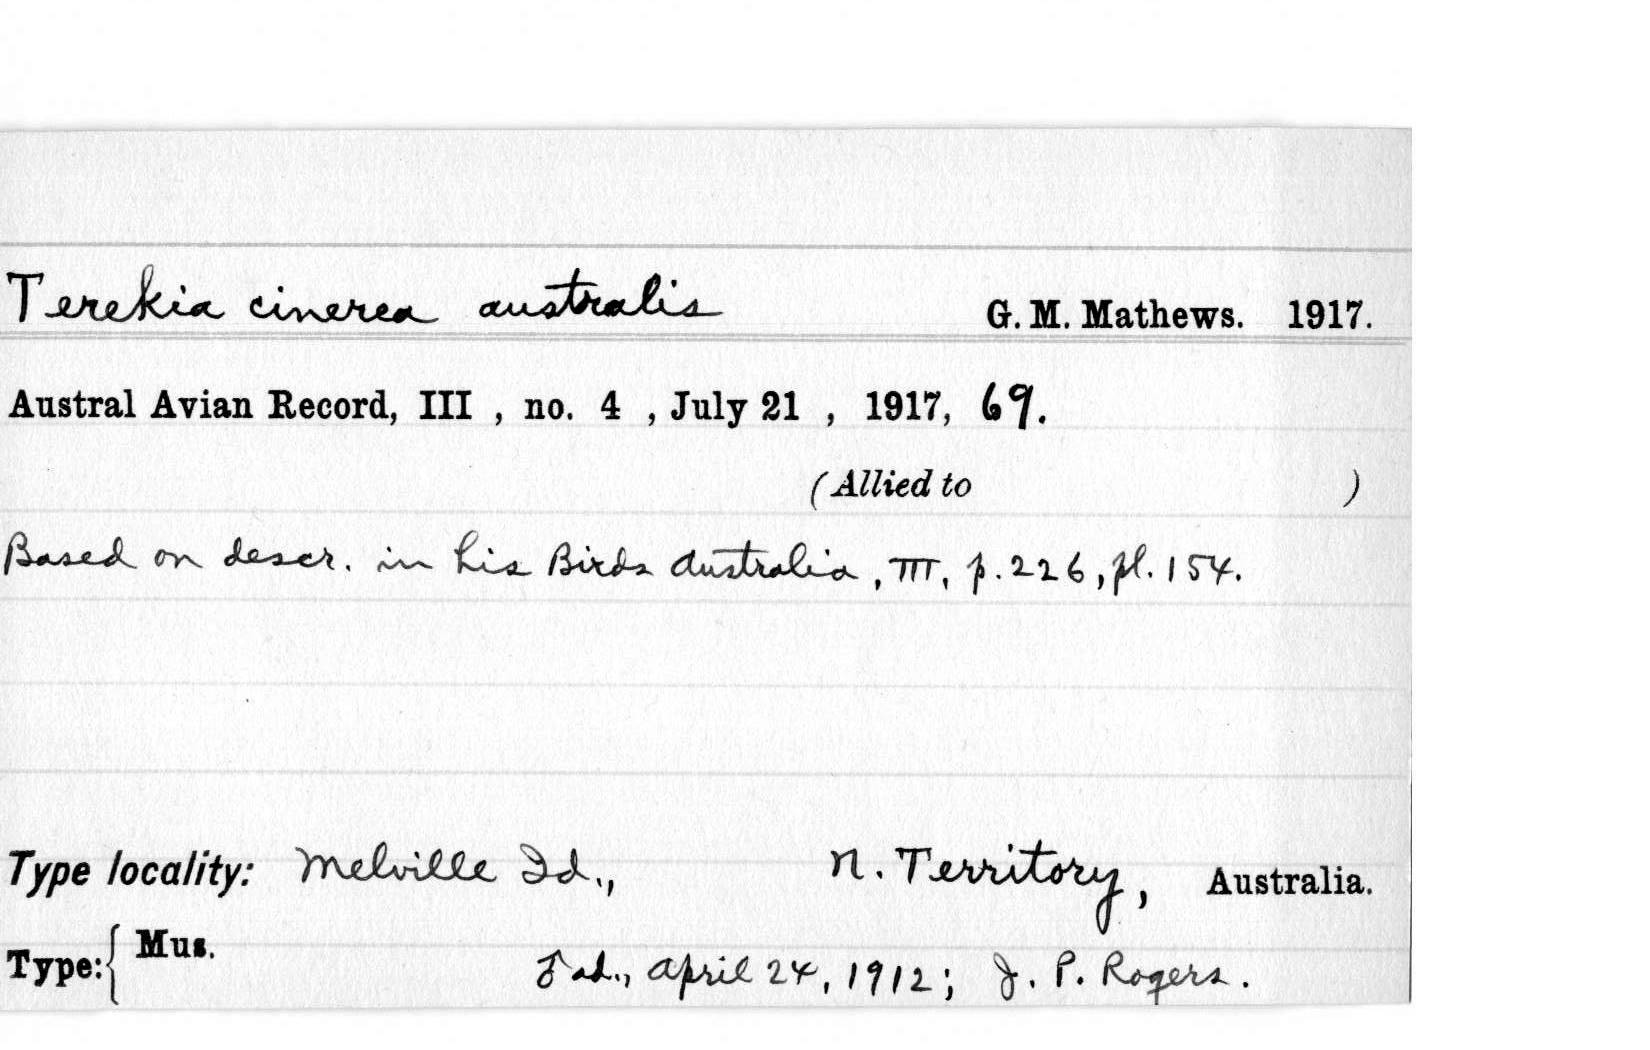 Terekia cinerea australis G. M. Mathews. 1917.
Austral Avian Record, III , no. 4 , July 21 , 1917, 69.
(Allied to )
Based on descr. in his Birds Australia, III, p. 226, pl. 154.
Type locality: Melville Id., N. Territory, Australia.
Type: { Mus. ad., April 24, 1912; J. P. Rogers.